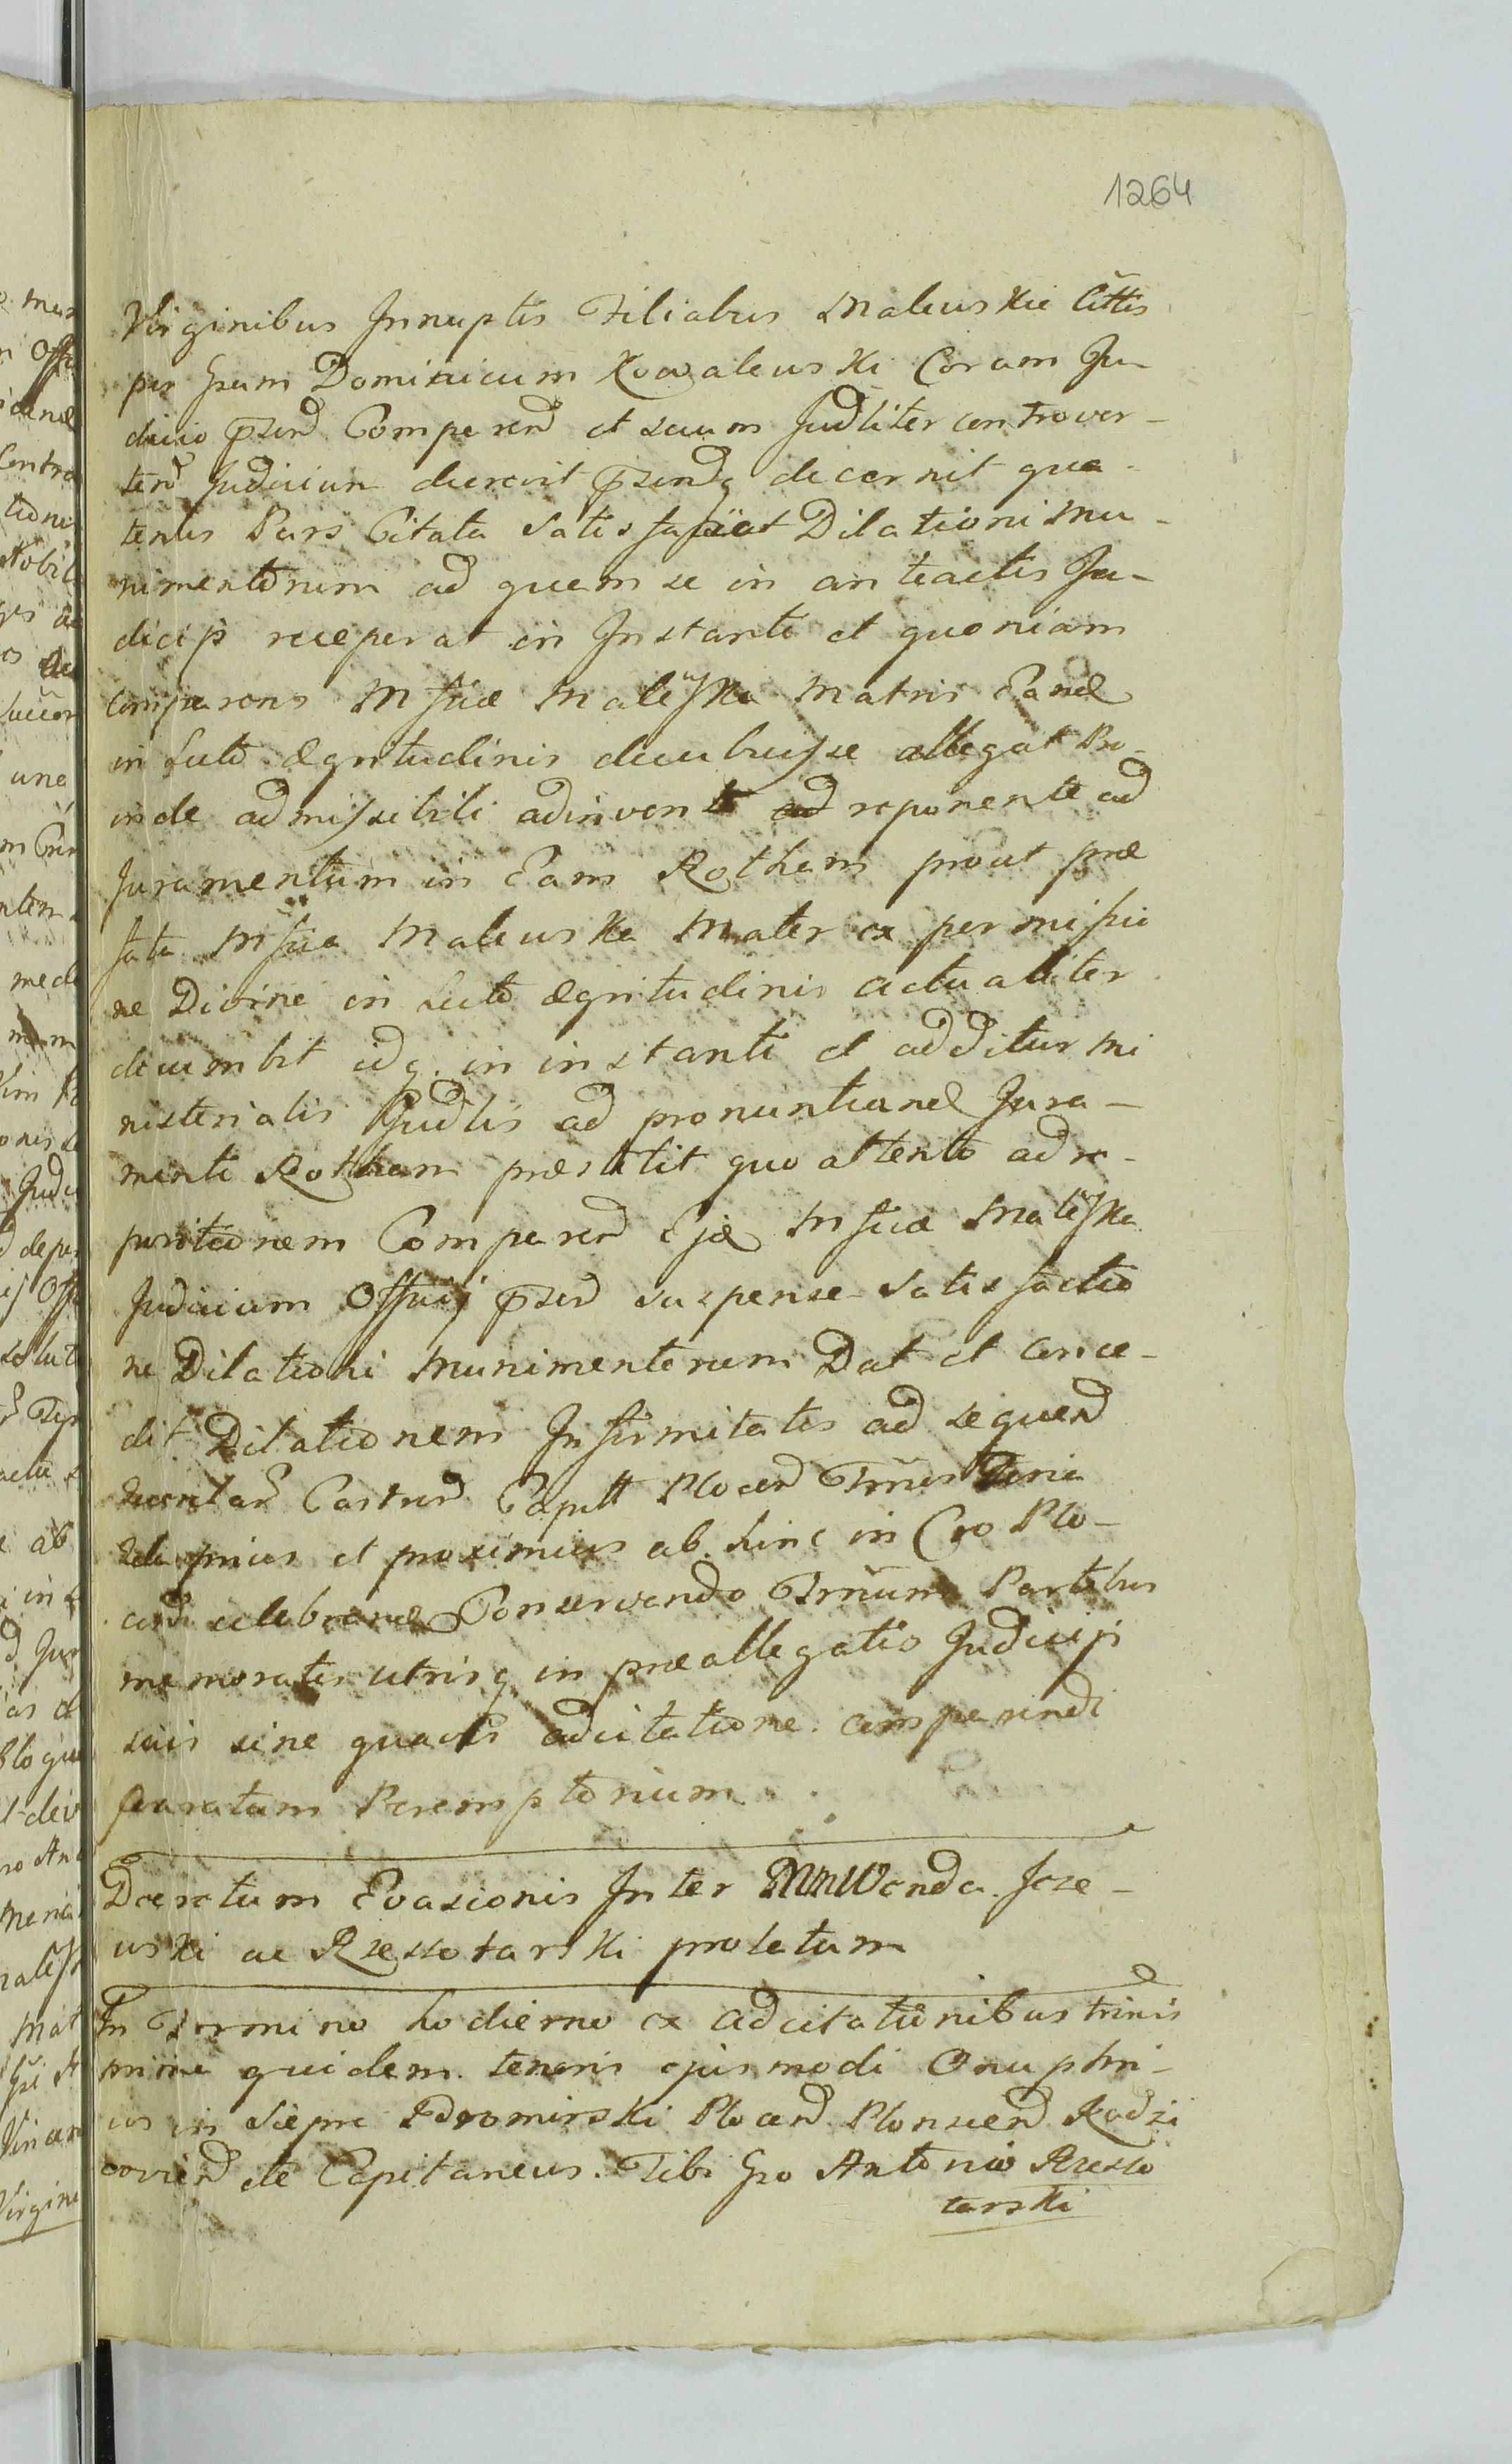 1264
Virginibus Innuptis Filiabus Maleuskie littis
per Gsum Dominicum Kowaleuski Coram Ju-
dicio pnzend Comparend et secum Judliter controver-
tend Judicium decrevit pnzendq decernit qua-
tenus Pars Citata Satisfaciat Dilationi Mu-
nimentorum ad quem se in anteactis Ju-
dicijs receperat in Instanti et quoniam
comparens Mficæ Maleuska Matris Eand
in Lecto Ægritudinis decubuisse allegat Pro-
inde admissibili adinvent ad reponente ad
Juramentum in Eam Rotham prout præ
fata Mfica Maleuska Mater ex permissio
ne Divine in Lecto ægritudinis actualiter
decumbit idq. in instanti et additur Mi
nisterialis Judlis ad pronuntiand Jura-
menti Rotham præstitit quo attento ad re-
positionem Comparend Ejd Mficæ Maleuska
Judicium Officij pnzend suspense Satisfactio
ne Dilationi Munimentorum Dat et conce-
dit Dilationem Infirmitatis ad sequend
Castren Capitt Plocen Trmis
prius et proximius ab hinc in Cro Plo-
cen celebrand Conservando Trminum Partibus
memoratis utrisq in præallegatis Judicijs
suis sine quavis adcitatione comparendi
Peremptorium
Decretum Evasionis Inter MM Wanda Joze-
uski ac Rzessotarski prolatum
In Termino hodierno ex Adcitationibus trinis
prime quidem tenoris ejusmodi Onuphri-
us in Siepre Bromirski Plocen Plonscen Radzi
ovien ete Capitaneus. Tibi Gso Antonio Rzesso
tarski